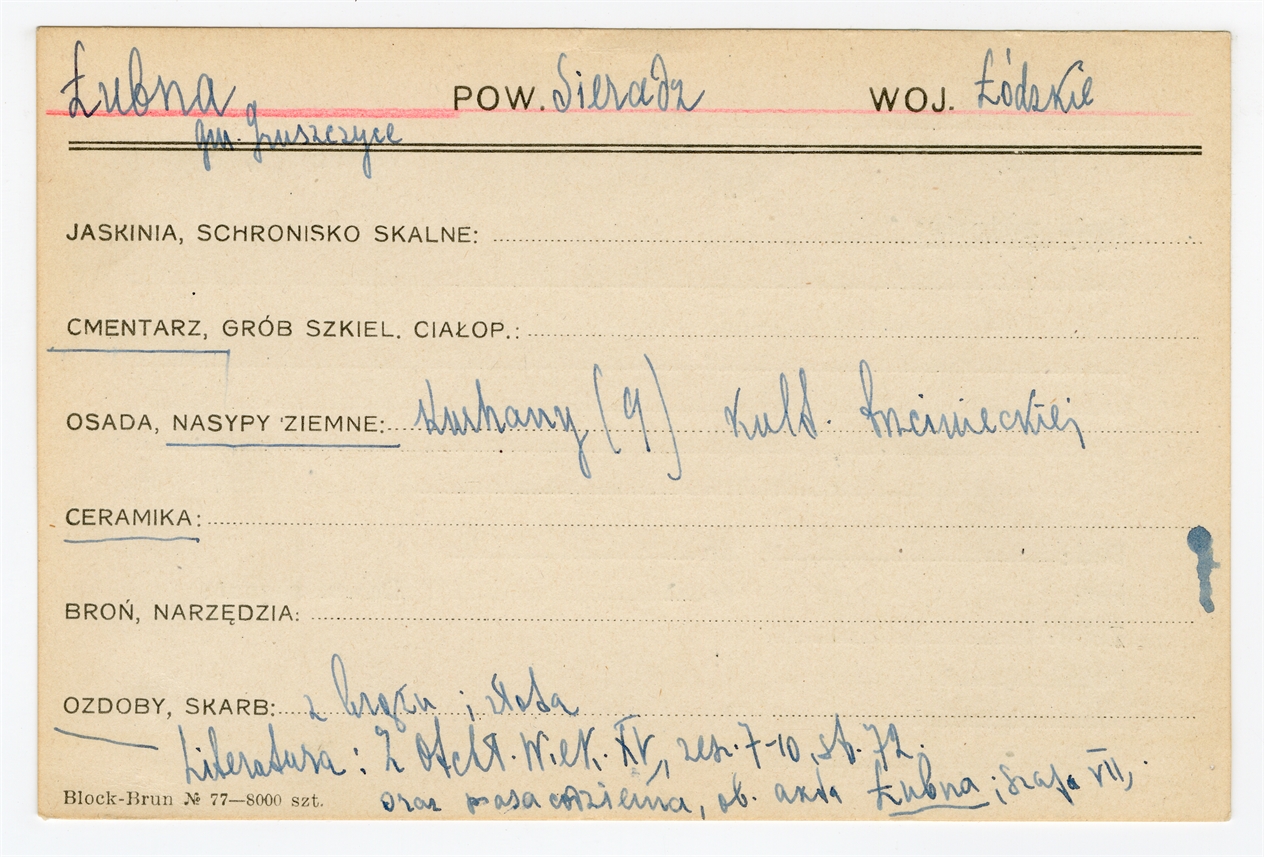 Łubna POW. Sieradz WOJ. Łódzkie
gm. Gruszczyce
JASKINIA, SCHRONISKO SKALNE:
CMENTARZ, GRÓB SZKIEL. CIAŁOP.:
OSADA, NASYPY ZIEMNE: Kurhany (9) kult. trzcinieckiej
CERAMIKA:
BROŃ, NARZĘDZIA:
OZDOBY, SKARB: z brązu i złota
Literatura: Z Otchł. Wiek. XV, zesz. 7-10, st. 72.
Block-Brun № 77—8000 szt. oraz prasa codzienna, ob. akta Łubna; szafa VII,